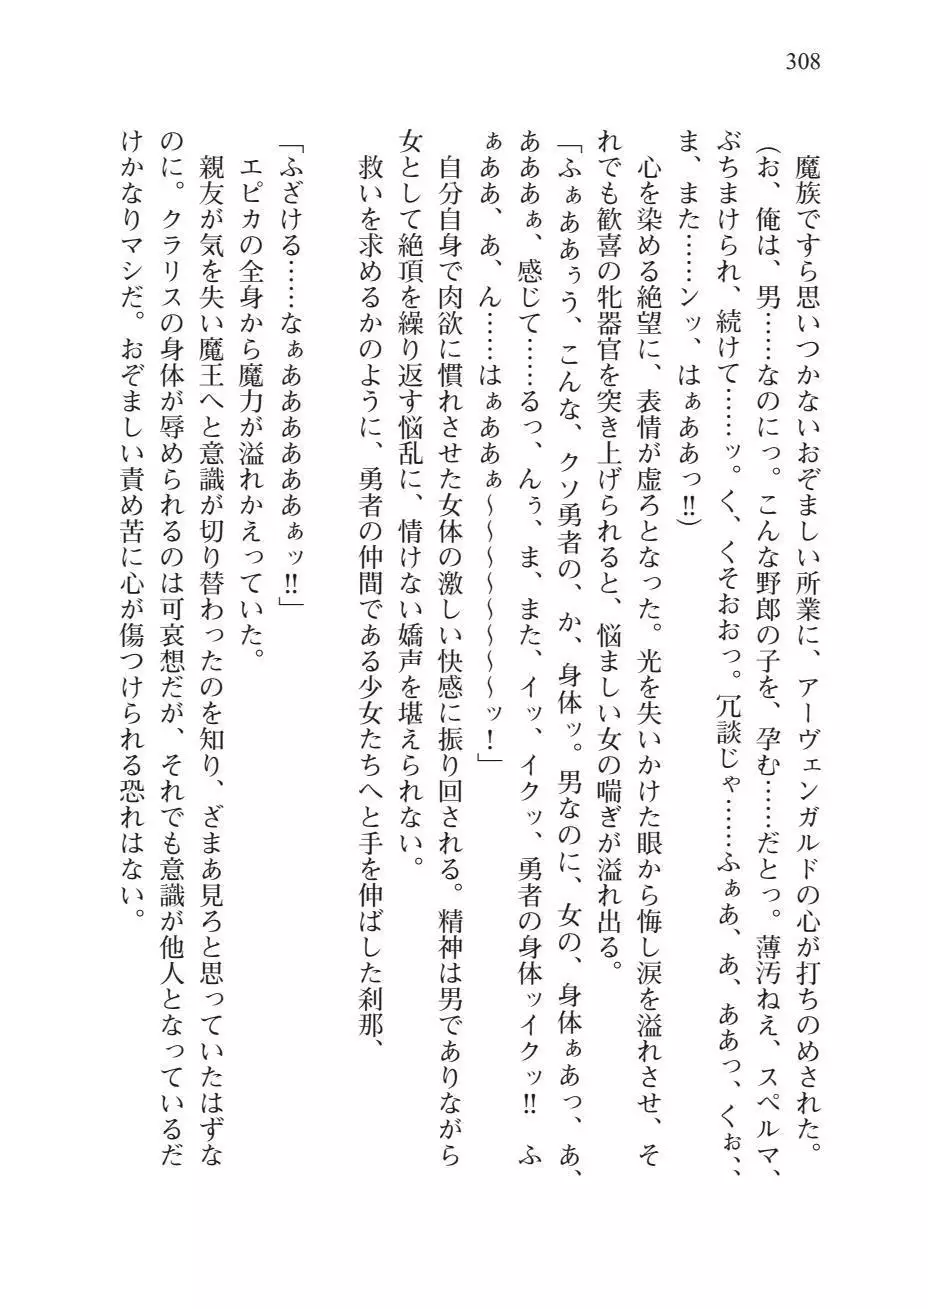 308
魔族ですら思いつかないおぞましい所業に、アーヴェンガルドの心が打ちのめされた。
(お、俺は、男……なのにっ。こんな野郎の子を、孕む……だとっ。薄汚ねえ、スペルマ、
ぶちまけられ、続けて……ッ。く、くそおおっ。冗談じゃ……ふぁあ、あ、ああっ、くぉ、、
ま、また……ンッ、はぁああっ!!)
心を染める絶望に、表情が虚ろとなった。光を失いかけた眼から悔し涙を溢れさせ、そ
れでも歓喜の牝器官を突き上げられると、悩ましい女の喘ぎが溢れ出る。
「ふぁああぅう、こんな、クソ勇者の、か、身体ッ。男なのに、女の、身体ぁあっ、あ、
ああああぁ、感じて……るっ、んぅ、ま、また、イッ、イクッ、勇者の身体ッイクッ!! ふ
ぁああ、あ、ん……はぁああぁ～～～～～～～～ッ!」
自分自身で肉欲に慣れさせた女体の激しい快感に振り回される。精神は男でありながら
女として絶頂を繰り返す悩乱に、情けない嬌声を堪えられない。
救いを求めるかのように、勇者の仲間である少女たちへと手を伸ばした刹那、
「ふざける……なぁああああああぁッ!!」
エピカの全身から魔力が溢れかえっていた。
親友が気を失い魔王へと意識が切り替わったのを知り、ざまあ見ろと思っていたはずな
のに。クラリスの身体が辱められるのは可哀想だが、それでも意識が他人となっているだ
けかなりマシだ。おぞましい責め苦に心が傷つけられる恐れはない。